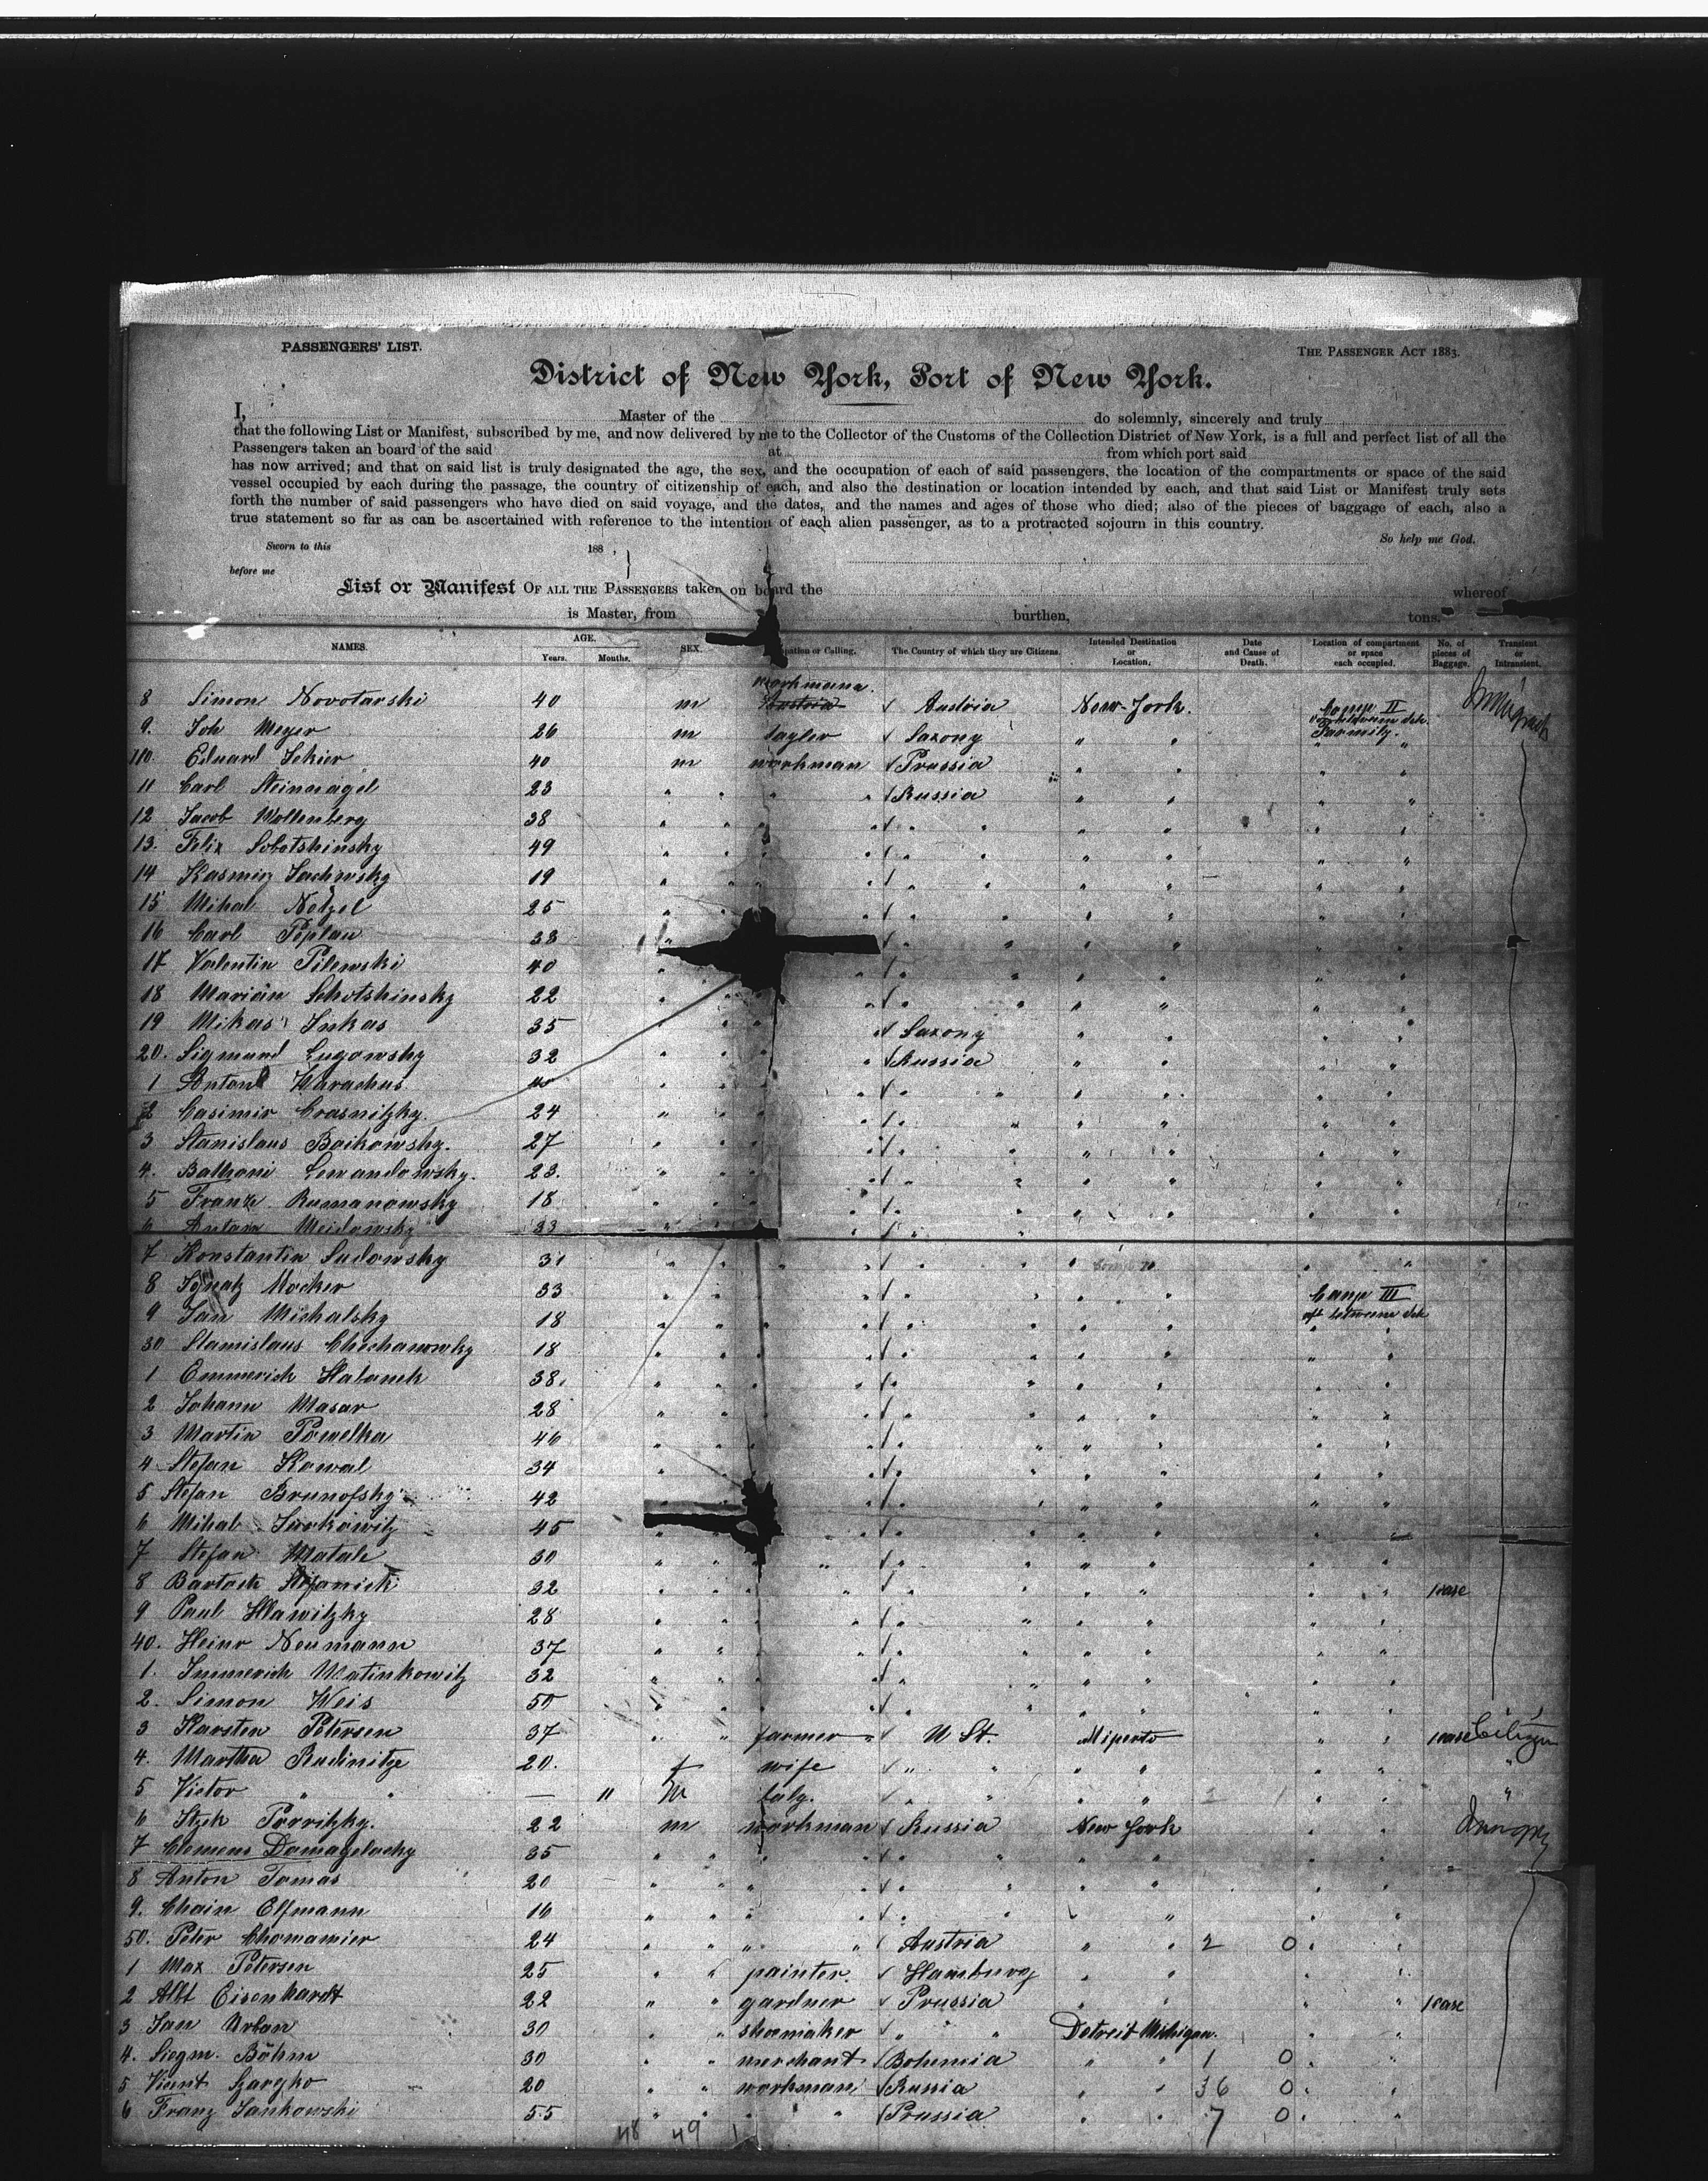 PASSENGERS' LIST.
THE PASSENGER ACT 1883.
District of New York, Port of New York.
I, Master of the do solemnly, sincerely and truly
that the following List or Manifest, subscribed by me, and now delivered by me to the Collector of the Customs of the Collection District of New York, is a full and perfect list of all the
Passengers taken an board of the said at from which port said
has now arrived; and that on said list is truly designated the age, the sex, and the occupation of each of said passengers, the location of the compartments or space of the said
vessel occupied by each during the passage, the country of citizenship of each, and also the destination or location intended by each, and that said List or Manifest truly sets
forth the number of said passengers who have died on said voyage, and the dates, and the names and ages of those who died; also of the pieces of baggage of each, also a
true statement so far as can be ascertained with reference to the intention of each alien passenger, as to a protracted sojourn in this country.
Sworn to this 188 , So help me God.
before me
List or Manifest OF ALL THE PASSENGERS taken on board the whereof
is Master, from burthen, tons.
NAMES. AGE. Years. Months. SEX. pation or Calling. The Country of which they are Citizens. Intended Destination or Location. Date and Cause of Death. Location of compartment or space each occupied. No. of pieces of Baggage. Transient or Intransient.
8 Simon Novotarski 40 m workmann Austria Austria New-York. II
9. Joh Meyer 26 m tayler Saxony " "
110. Eduard 40 m workman Prussia " "
11 Carl Steinnagel 23 " " Russia " "
12 Jacob Wollenberg 38 " " " " "
13. Felix Sobotshinsky 49 " " " " "
14 Kasmin 19 " " " " "
15 Mihal Netzel 25 " " " " "
16 Carl Peplau 38 " " " "
17 Valentin Pilewski 40 " " " " "
18 Marian Schotshinsky 22 " " " " "
19 Mikas 35 " " Saxony " "
20. Sigmund Lugowsky 32 " " Russia " "
1 Anton 40 " " " " "
2 Casimir Crasnitzky. 24 " " " " "
3 Stanislaus Boikowsky. 27 " " " " "
4. Lewandowsky. 23. " " " " "
5 Franz Rumanowsky 18 " " " " "
6 Anton Meidowsky 33 " " "
7 Konstantin Sudowsky 31 " " " "
8 Ignatz Mocker 33 " " " " " III
9 Jan Michalsky 18 " " " " " aft
30 Stanislaus 18 " " " " "
1 Emmerich 38. " " " " "
2 Johann Masar 28 " " " " "
3 Martin Powelka 46 " " " " "
4 Stefan Kowal 34 " " " " "
5 Stefan Brunofsky 42 " " " "
6 Mihal 45 " " " "
7 Stefan 30 " " " " "
8 32 " " " " " 1 case
9 Paul Hlawitzky 28 " " " " "
40. Heinr Neumann 37 " " " " "
1. Immerich Matinkowitz 32 " " " " "
2. Simon Weis 50 " " " " "
3 Karsten Petersen 37 " " farmer U St. 1 case Citizen
4. Martha Rudinitze 20. f wife " " "
5 Victor " — 11 M " " "
6 22 m workman Russia New York
7 Clemens 35 " " " " "
8 Anton Tomas 20 " " " " "
9. Chain Elfmann 16 " " " " "
50. Peter 24 " " Austria " " 2 0
1 Max Petersen 25 " " painter. Hamburg " "
2 Albt Eisenhardt 22 " " gardner Prussia " " 1 case
3 Jan Urban 30 " " shoemaker " " Detroit Michigan.
4. Siegm. Böhm 30 " " merchant Bohemia " " 1 0
5 20 " " workman Russia " " 36 0
6 Franz Jankowski 55 " " " Prussia " " 7 0
48 49 1